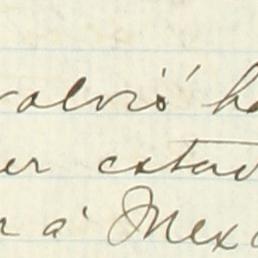 volvió ha
er estad
r á Mexi